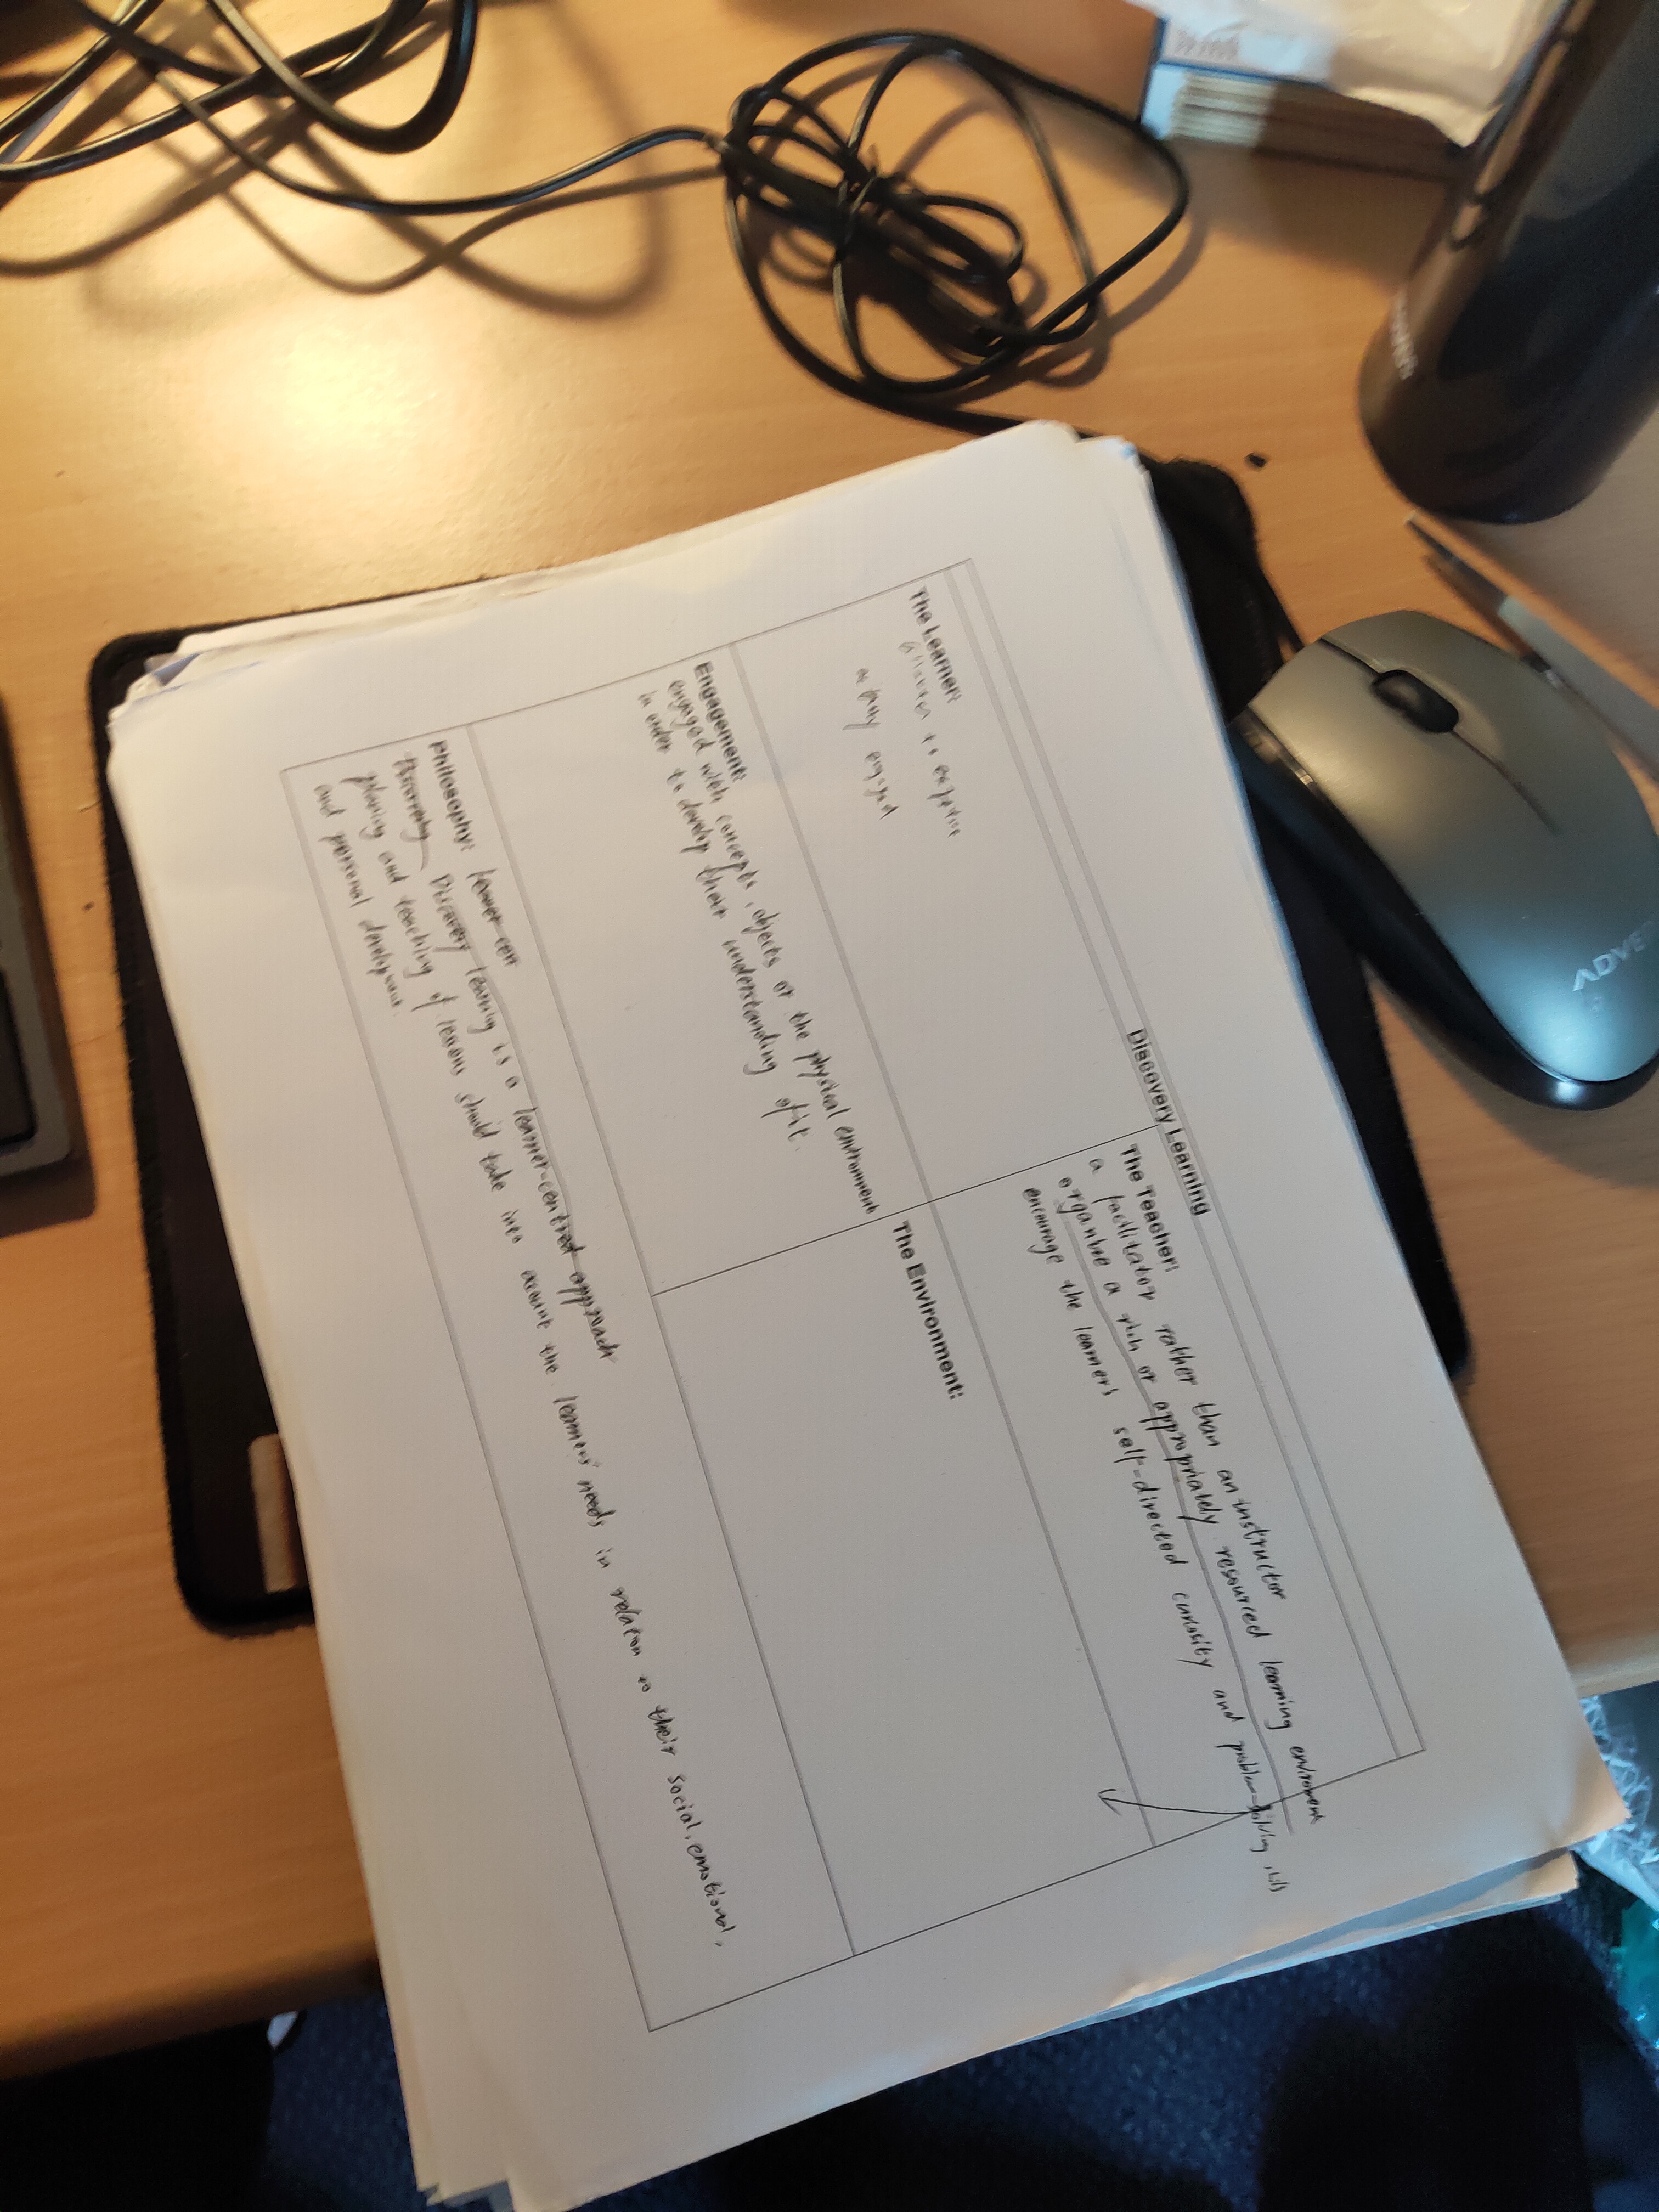 Discovery Learning
The Learner:
engaged
The Teacher:
a facilitator rather than an instructor
organize a rich or appropriately resourced learning environment
encourage the learners self-directed curiosity and problem-solving skills
Engagement:
engaged with concepts, objects or the physical environment
in order to develop their understanding of it.
The Environment:
Philosophy: learner-cen
Discovery learning is a learner-centred approach
planing and teaching of lessons should take into account the learners' needs in relation to their social, emotional,
and personal development.
ADVE